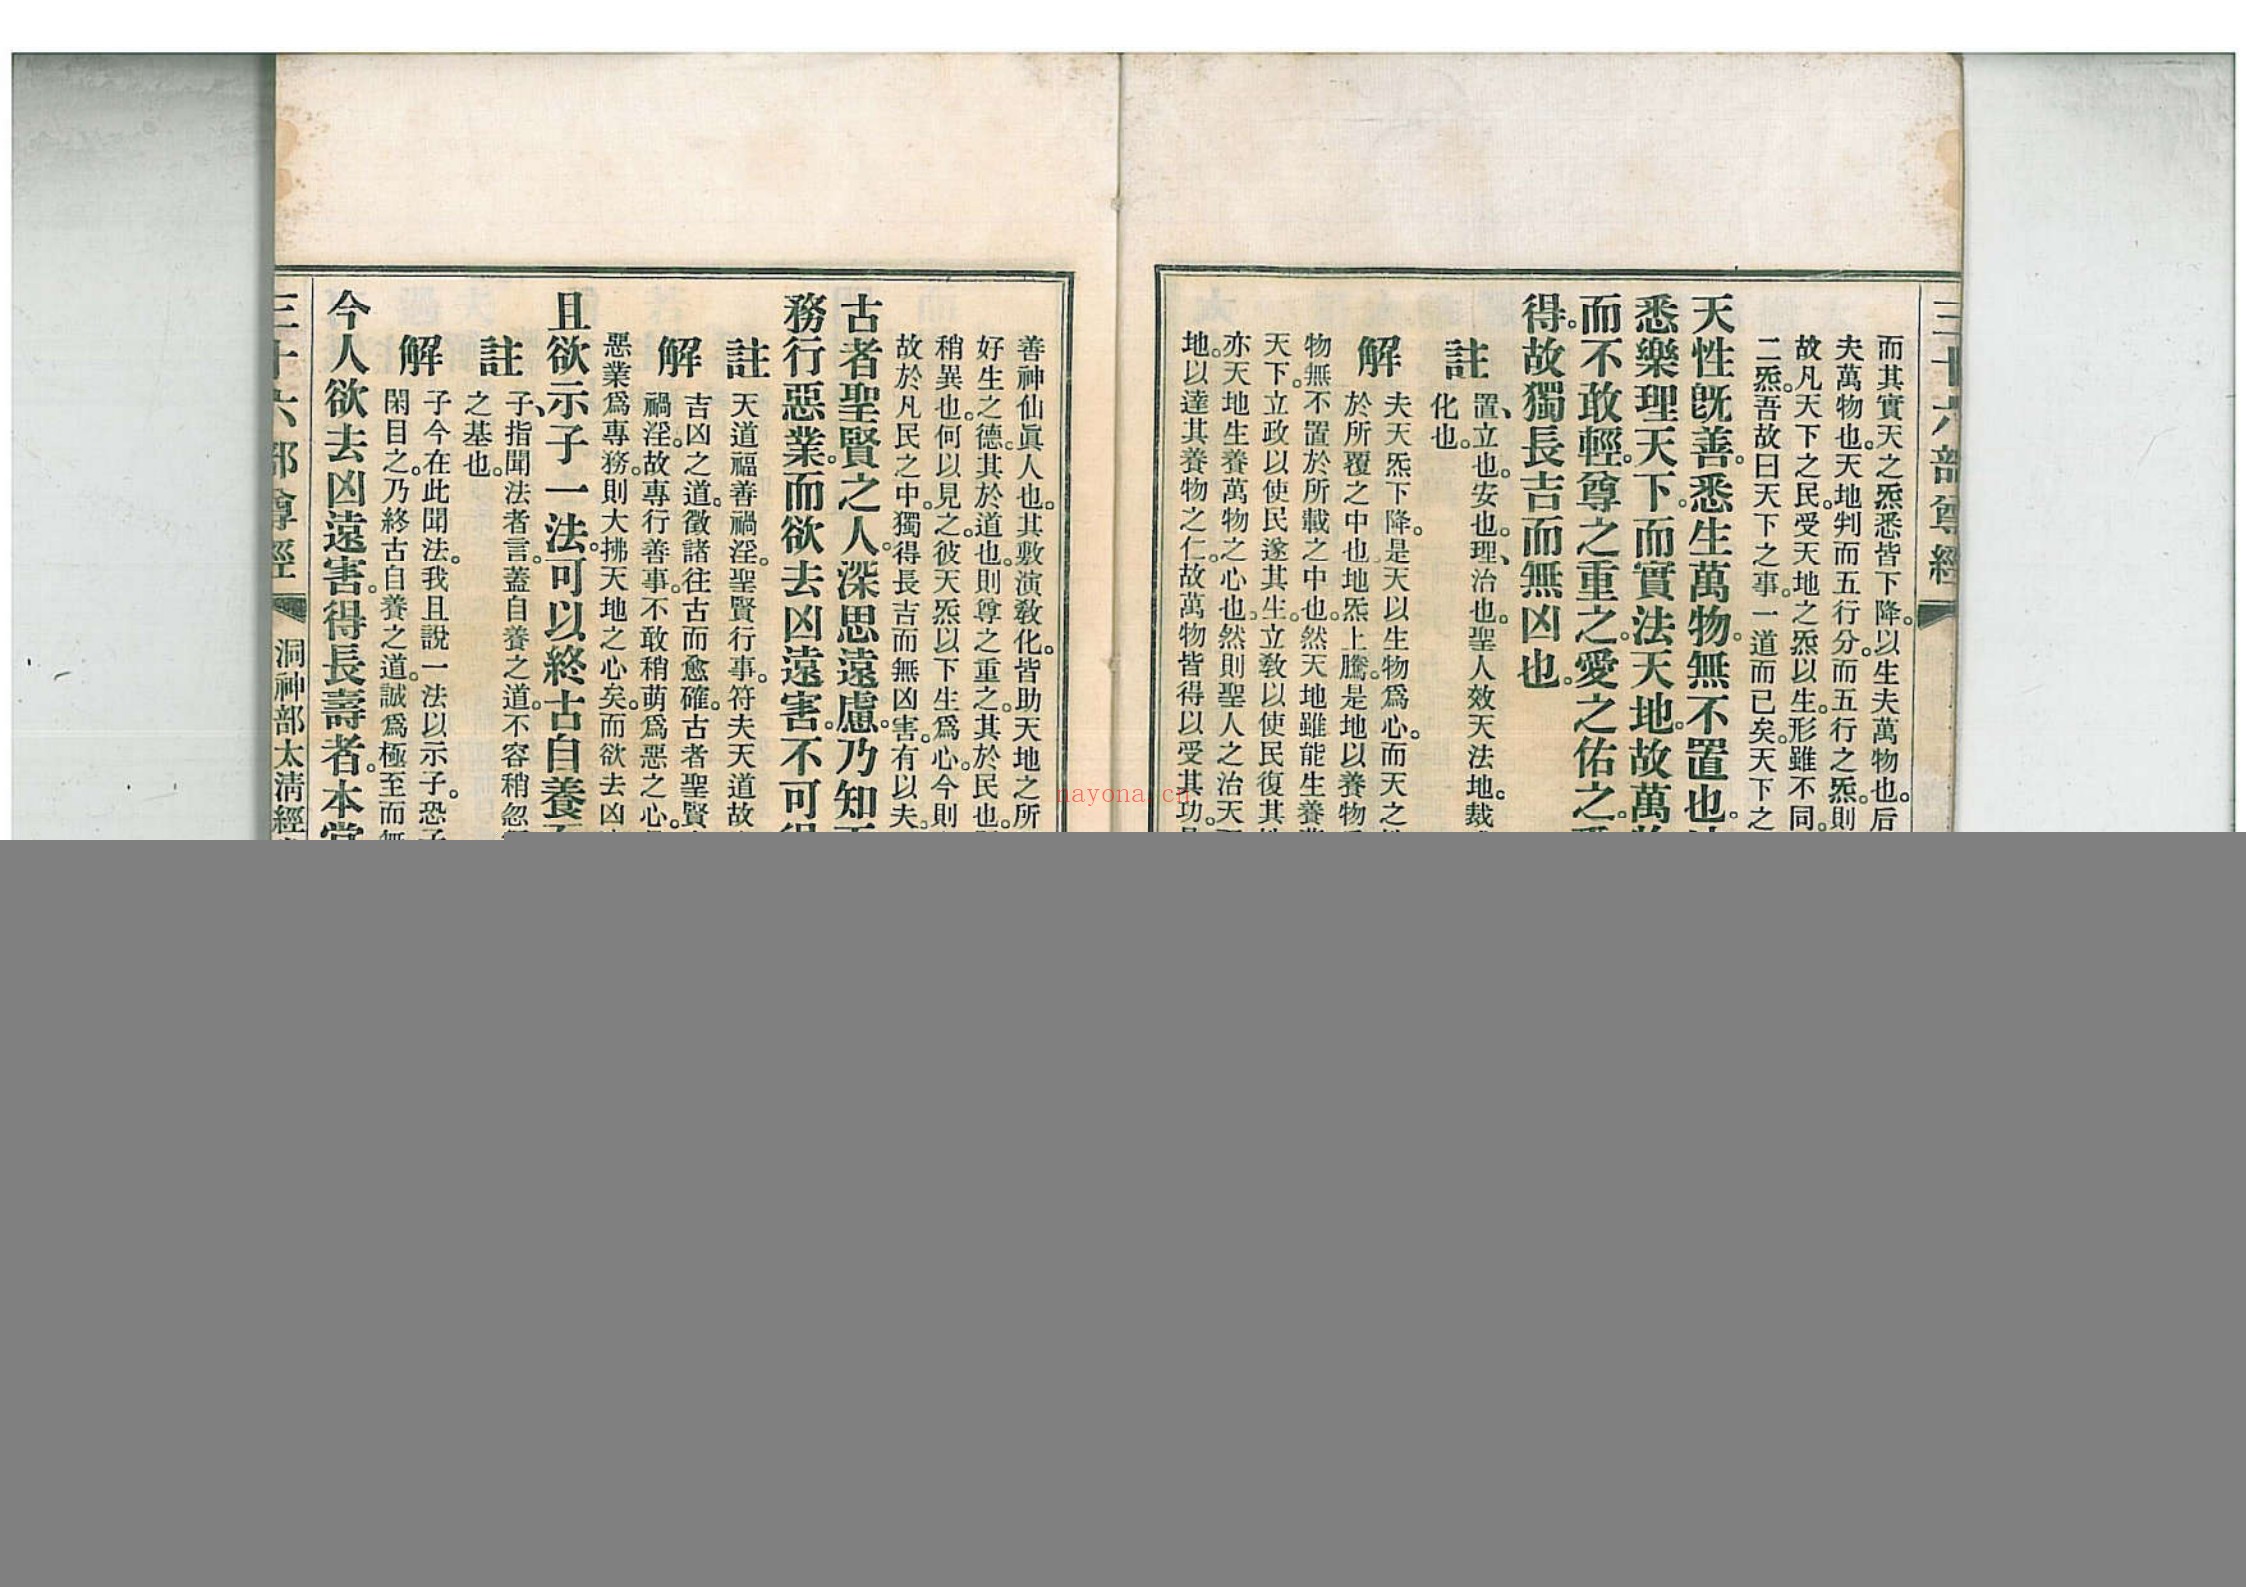 三十六部尊經
而其實天之炁悉皆下降。以生夫萬物也。后
夫萬物也。天地判而五行分。而五行之炁。則
故凡天下之民。受天地之炁以生。形雖不同。
二炁。吾故曰天下之事。一道而已矣。天下之
天性旣善。悉生萬物。無不置也。
悉樂理天下。而實法天地。故萬
而不敢輕。尊之重之。愛之佑之。
得。故獨長吉而無凶也。
註
置、立也。安也。理、治也。聖人效天法地。裁
化也。
解
夫天炁下降。是天以生物爲心。而天之
於所覆之中也。地炁上騰。是地以養物
物無不置於所載之中也。然天地雖能生養
天下。立政以使民遂其生。立敎以使民復其
亦天地生養萬物之心也。然則聖人之治天
地。以達其養物之仁。故萬物皆得以受其功。
善神仙眞人也。其敷演敎化。皆助天地之所
好生之德。其於道也。則尊之重之。其於民也。
稍異也。何以見之。彼天炁以下生爲心。今則
故於凡民之中。獨得長吉而無凶害。有以夫。
古者聖賢之人。深思遠慮。乃知
務行惡業。而欲去凶遠害。不可得
註
天道福善禍淫。聖賢行事。符夫天道故
解
吉凶之道。徵諸往古而愈確。古者聖賢
禍淫。故專行善事。不敢稍萌爲惡之心。
惡業爲專務。則大拂天地之心矣。而欲去凶
且欲示子一法。可以終古自養
註
子、指聞法者言。蓋自養之道。不容稍忽
之基也。
解
子今在此聞法。我且說一法以示子。恐子
閑目之。乃終古自養之道。誠爲極至而無
今人欲去凶遠害。得長壽者。本當
三十六部尊經
洞神部太淸經
nayona.cn